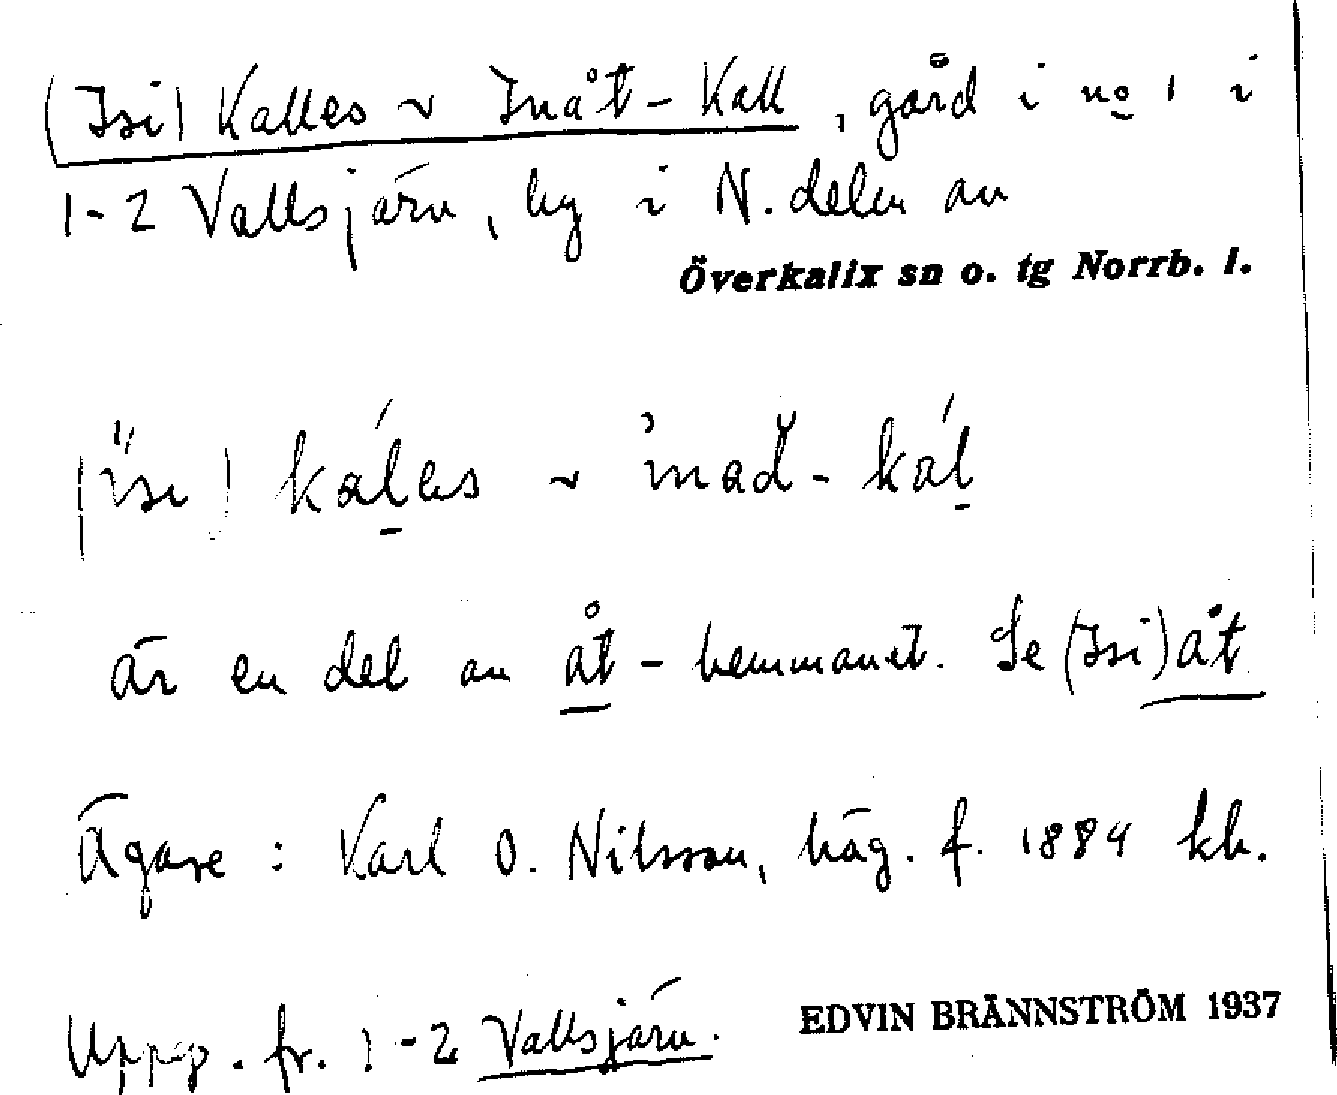 (Isi) Kalles ~ Inåt-Kall, gård i no 1 i
1-2 Vallsjärv, by i N. delen av
Överkalix sn o. tg Norrb. l.
káles ~ kál
är en del av åt-hemmanet. Se (Isi)åt
Ägare: Karl O. Nilsson, häg. f. 1884 kh.
Uppg. fr. 1-2 Vallsjärv.
EDVIN BRÄNNSTRÖM 1937